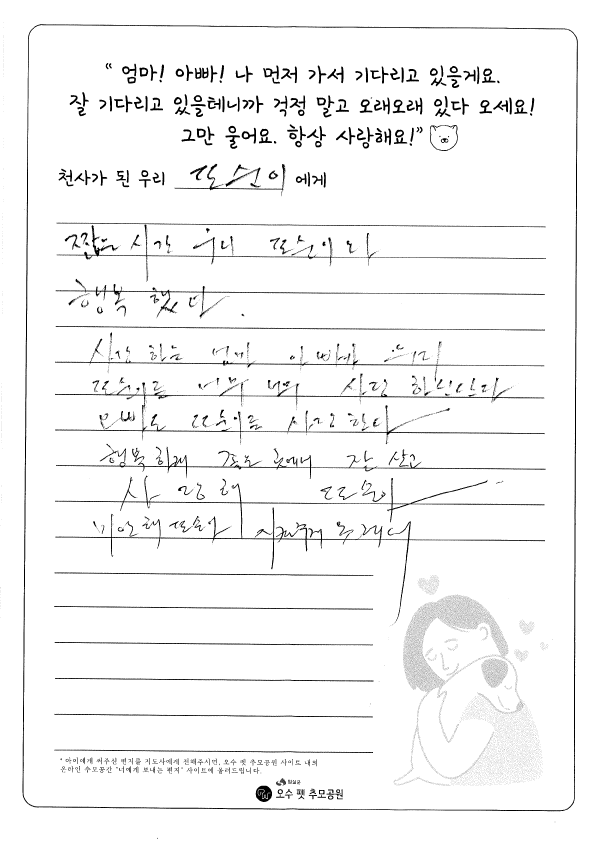 “ 엄마! 아빠! 나 먼저 가서 기다리고 있을게요.
잘 기다리고 있을테니까 걱정 말고 오래오래 있다 오세요!
그만 울어요. 항상 사랑해요!”
천사가 된 우리 또순이 에게
짧은 시간 우리 또순이라
행복 했다.
사랑 하는 엄마 아빠가 우리
또순이를 너무 너무 사랑 하신단다
오빠도 또순이를 사랑 한다
행복하게 좋은 곳에서 잘 살고
사랑해 또순아
미안해 또순아
* 아이에게 써주신 편지를 지도사에게 전해주시면, 오수 펫 추모공원 사이트 내의
온라인 추모공간 "너에게 보내는 편지" 사이트에 올려드립니다.
임실군
오수 펫 추모공원